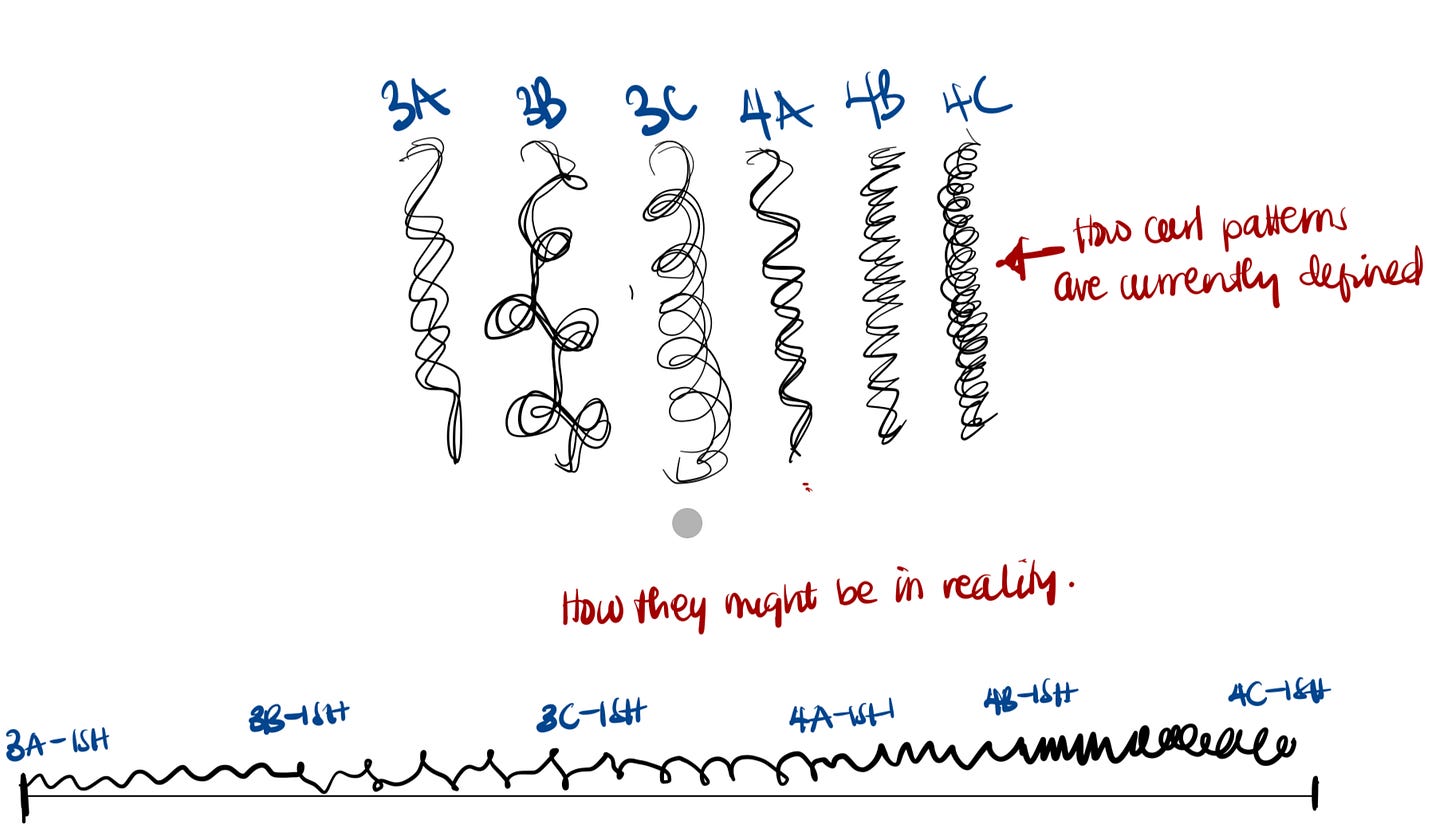 3A 3B 3C 4A 4B 4C
How curl patterns
are currently defined
How they might be in reality.
3A-ISH 3B-ISH 3C-ISH 4A-ISH 4B-ISH 4C-ISH